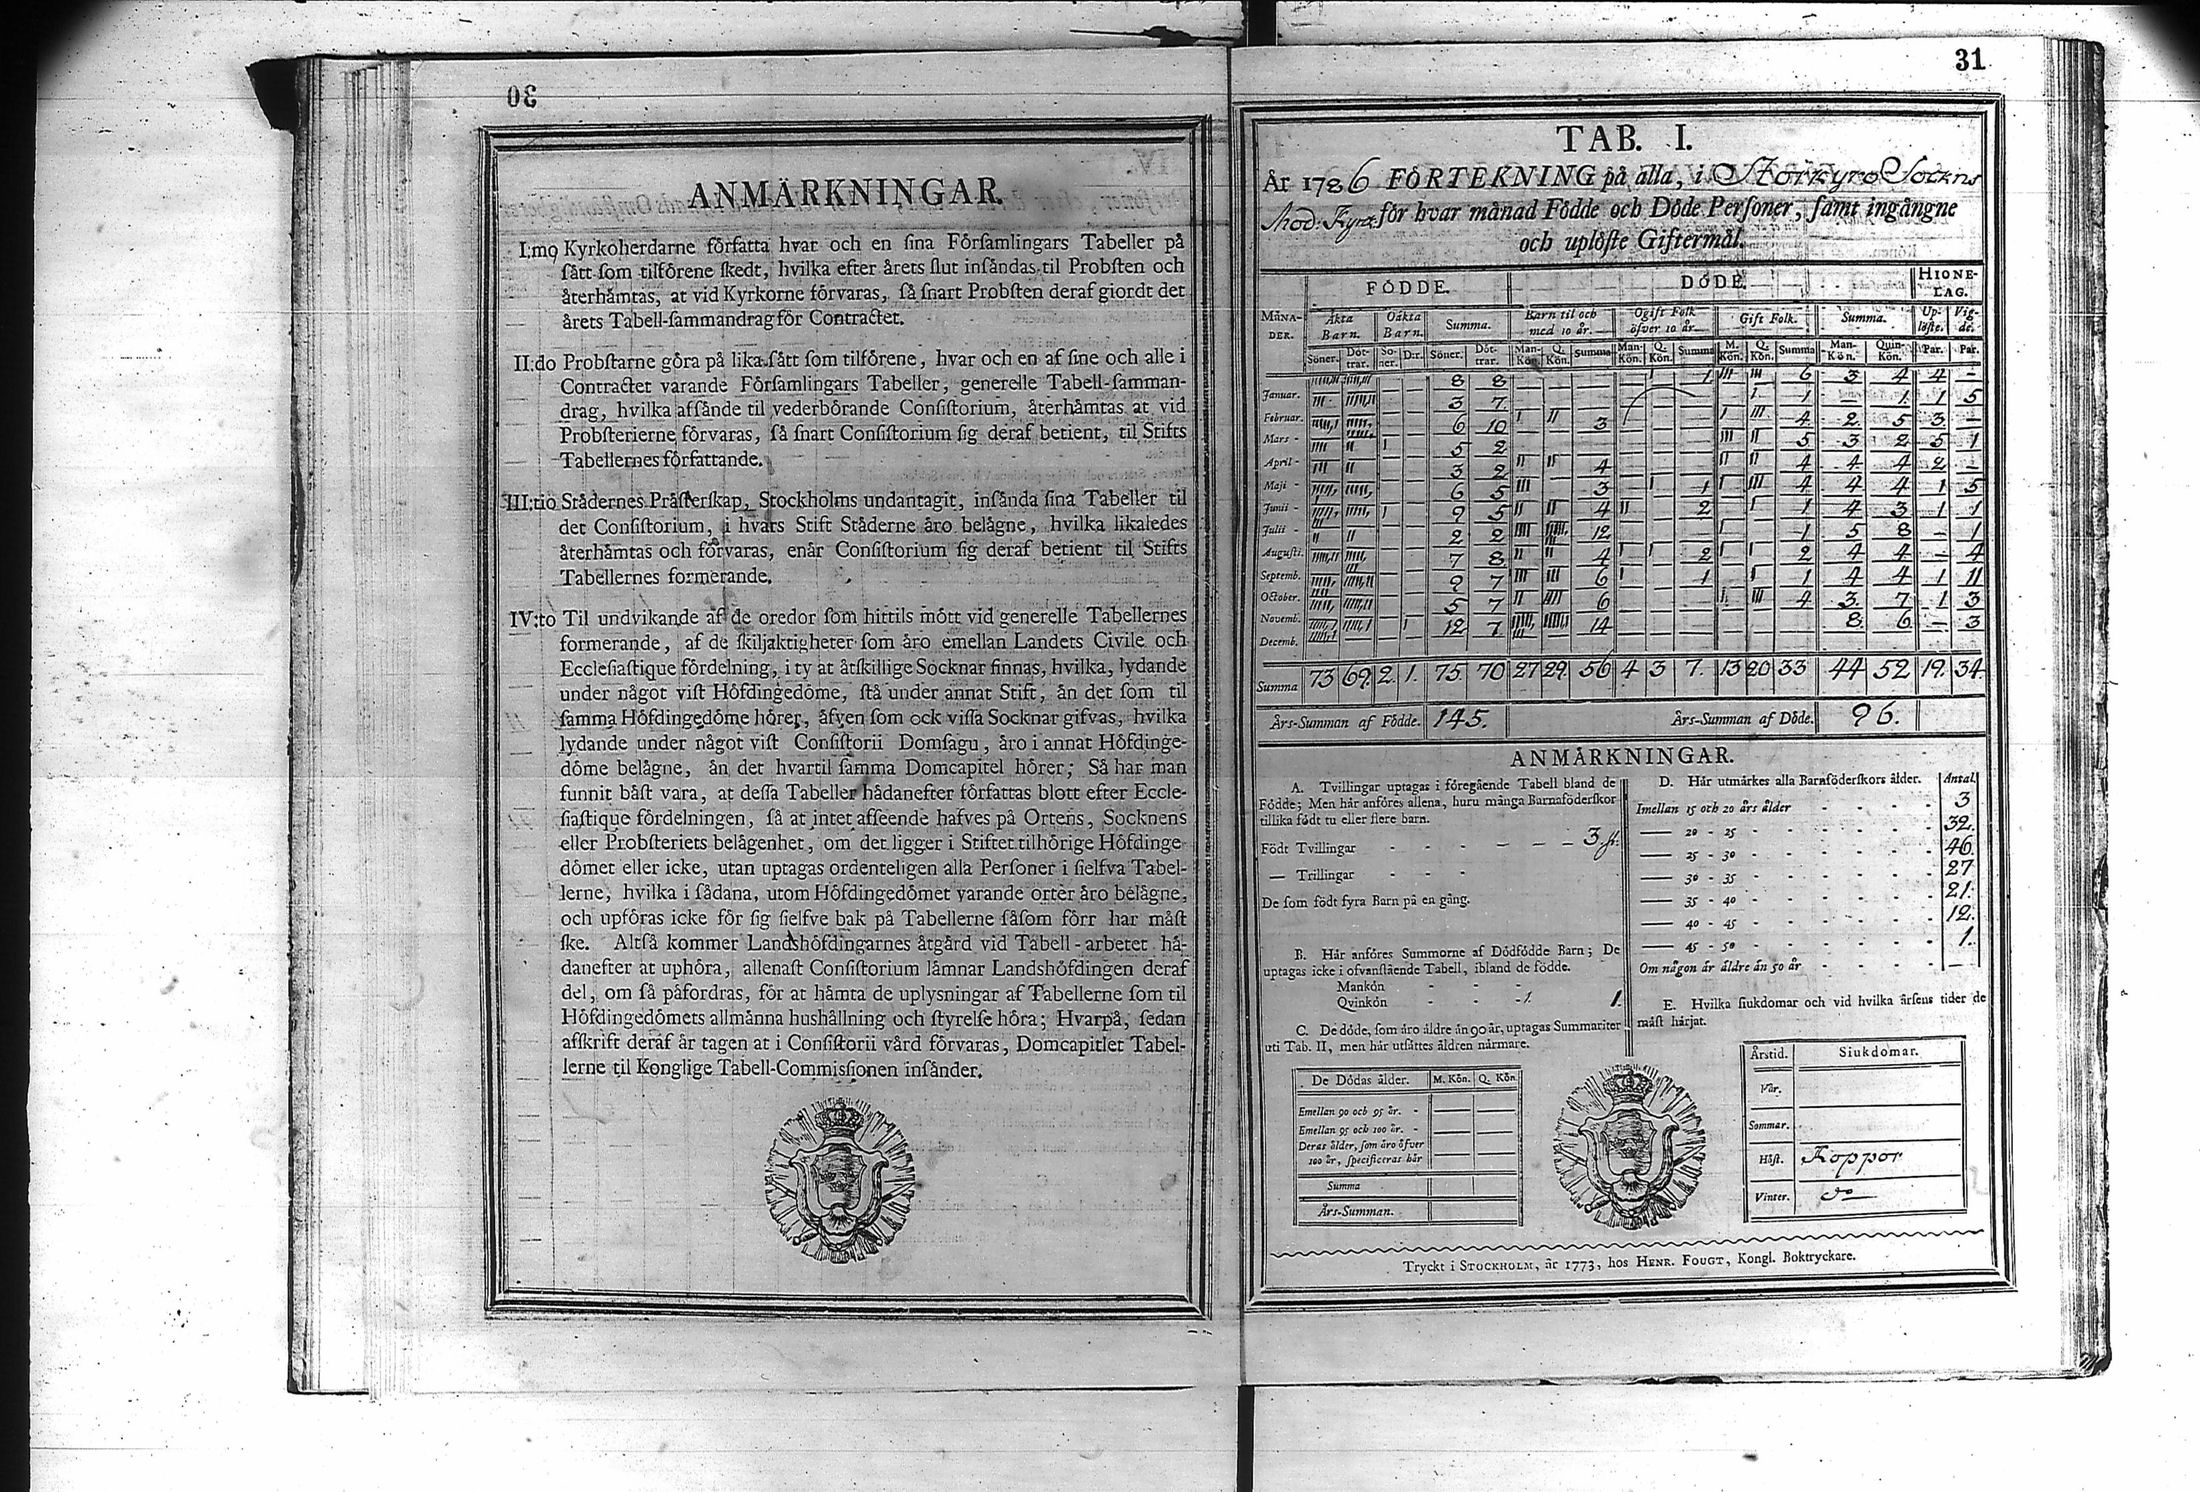 30
ANMÄRKNINGAR.
I:mo Kyrkoherdarne författa hvar och en ſina Förſamlingars Tabeller på
ſätt ſom tilförene ſkedt, hvilka efter årets ſlut inſändas til Probſten och
återhämtas, at vid Kyrkorne förvaras, ſå ſnart Probſten deraf giordt det
årets Tabell-ſammandrag för Contractet.
II:do Probſtarne göra på lika ſätt ſom tilförene, hvar och en af ſine och alle i
Contractet varande Förſamlingars Tabeller, generelle Tabell-ſamman-
drag, hvilka afſände til vederbörande Conſiſtorium, återhämtas at vid
Probſterierne förvaras, ſå ſnart Conſiſtorium ſig deraf betient, til Stifts
Tabellernes författande.
III:tio Städernes Präſterſkap, Stockholms undantagit, inſända ſina Tabeller til
det Conſiſtorium, i hvars Stift Städerne äro belägne, hvilka likaledes
återhämtas och förvaras, enär Conſiſtorium ſig deraf betient til Stifts
Tabellernes formerande.
IV:to Til undvikande af de oredor ſom hittils mött vid generelle Tabellernes
formerande, af de ſkiljaktigheter ſom äro emellan Landets Civile och
Eccleſiaſtique fördelning, i ty at åtſkillige Socknar finnas, hvilka, lydande
under något viſt Höfdingedöme, ſtå under annat Stift, än det ſom til
ſamma Höfdingedöme hörer, äfven ſom ock viſſa Socknar gifvas, hvilka
lydande under något viſt Conſiſtorii Domſagu, äro i annat Höfdinge-
döme belägne, än det hvartil ſamma Domcapitel hörer; Så har man
funnit bäſt vara, at deſſa Tabeller hädanefter författas blott efter Eccle-
ſiaſtique fördelningen, ſå at intet afſeende hafves på Ortens, Socknens
eller Probſteriets belägenhet, om det ligger i Stiftet tilhörige Höfdinge-
dömet eller icke, utan uptagas ordenteligen alla Perſoner i ſielfva Tabel-
lerne, hvilka i ſådana, utom Höfdingedömet varande orter äro belägne,
och upföras icke för ſig ſielfve bak på Tabellerne ſåſom förr har måſt
ſke. Altſå kommer Landshöfdingarnes åtgärd vid Tabell-arbetet hä-
danefter at uphöra, allenaſt Conſiſtorium lämnar Landshöfdingen deraf
del, om ſå påfordras, för at hämta de uplysningar af Tabellerne ſom til
Höfdingedömets allmänna hushållning och ſtyrelſe höra; Hvarpå, ſedan
afſkrift deraf är tagen at i Conſiſtorii vård förvaras, Domcapitlet Tabel-
lerne til Konglige Tabell-Commisſionen inſänder.
31
TAB. I.
År 1786 FÖRTEKNING på alla, i Storkyro Sockns
Mod: Kyra för hvar månad Födde och Döde Perſoner, ſamt ingångne
och uplöſte Giftermål.
FÖDDE. DÖDE. HIONE-LAG.
MÅNA-DER. Äkta Barn. Oäkta Barn. Summa. Barn til och med 10 år. Ogift Folk öfver 10 år Gift Folk. Summa. Up-löſte. Vig-de.
Söner. Döt-trar. So-ner. D:r. Söner. Döt-trar. Man-Kön. Q. Kön. Summa Man-Kön. Q. Kön. Summa M. Kön. Q. Kön. Summa Man-Kön. Quin-Kön. Par. Par.
Januar. 8 8 1 6 3 4 4 -
Februar. 3 7 1 — 1 1 5
Mars 6 10 3 4 2 5 3 -
April 5 2 5 3 2 5 1
Maji 3 2 4 4 4 4 2 —
Junii 6 5 3 1 4 4 4 1 5
Julii 9 5 4 2 1 4 3 1 1
Auguſti. 2 2 12 1 5 8 - 1
Septemb. 7 8 4 2 2 4 4 - 4
October. 9 7 6 1 1 4 4 1 11
Novemb. 5 7 6 4 3 7 1 3
Decemb. 12 7 14 8 6 — 3
Summa 73 69 2 1 75 70 27 29 56 4 3 7 13 20 33 44 52 19 34
Års-Summan af Födde. 145. Års-Summan af Döde. 96.
ANMÄRKNINGAR.
A. Tvillingar uptagas i föregående Tabell bland de
Födde; Men här anföres allena, huru många Barnaföderſkor
tillika födt tu eller flere barn.
Födt Tvillingar - - - 3 ſt.
— Trillingar - - -
De ſom födt fyra Barn på en gång.
B. Här anföres Summorne af Dödfödde Barn; De
uptagas icke i ofvanſtående Tabell, ibland de födde.
Mankön - - -
Qvinkön - - - 1. 1.
C. De döde, ſom äro äldre än 90 år, uptagas Summariter
uti Tab. II, men här utſättes åldren närmare.
De Dödas ålder. M. Kön. Q. Kön.
Emellan 90 och 95 år. -
Emellan 95 och 100 år. -
Deras ålder, ſom äro öfver
100 år, ſpecificeras här
Summa
Års-Summan.
D. Här utmärkes alla Barnföderſkors ålder. Antal
Imellan 15 och 20 års ålder - 3
— 20 - 25 - 32.
— 25 - 30 - 46
— 30 - 35 - 27
— 35 - 40 - 21.
— 40 - 45 - 12.
— 45 - 50 - 1.
Om någon är äldre än 50 år - —
E. Hvilka ſiukdomar och vid hvilka årſens tider de
mäſt härjat.
Årstid. Siukdomar.
Vår.
Sommar.
Höſt. Koppor
Vinter. do
Tryckt i STOCKHOLM, år 1773, hos HENR. FOUGT, Kongl. Boktryckare.